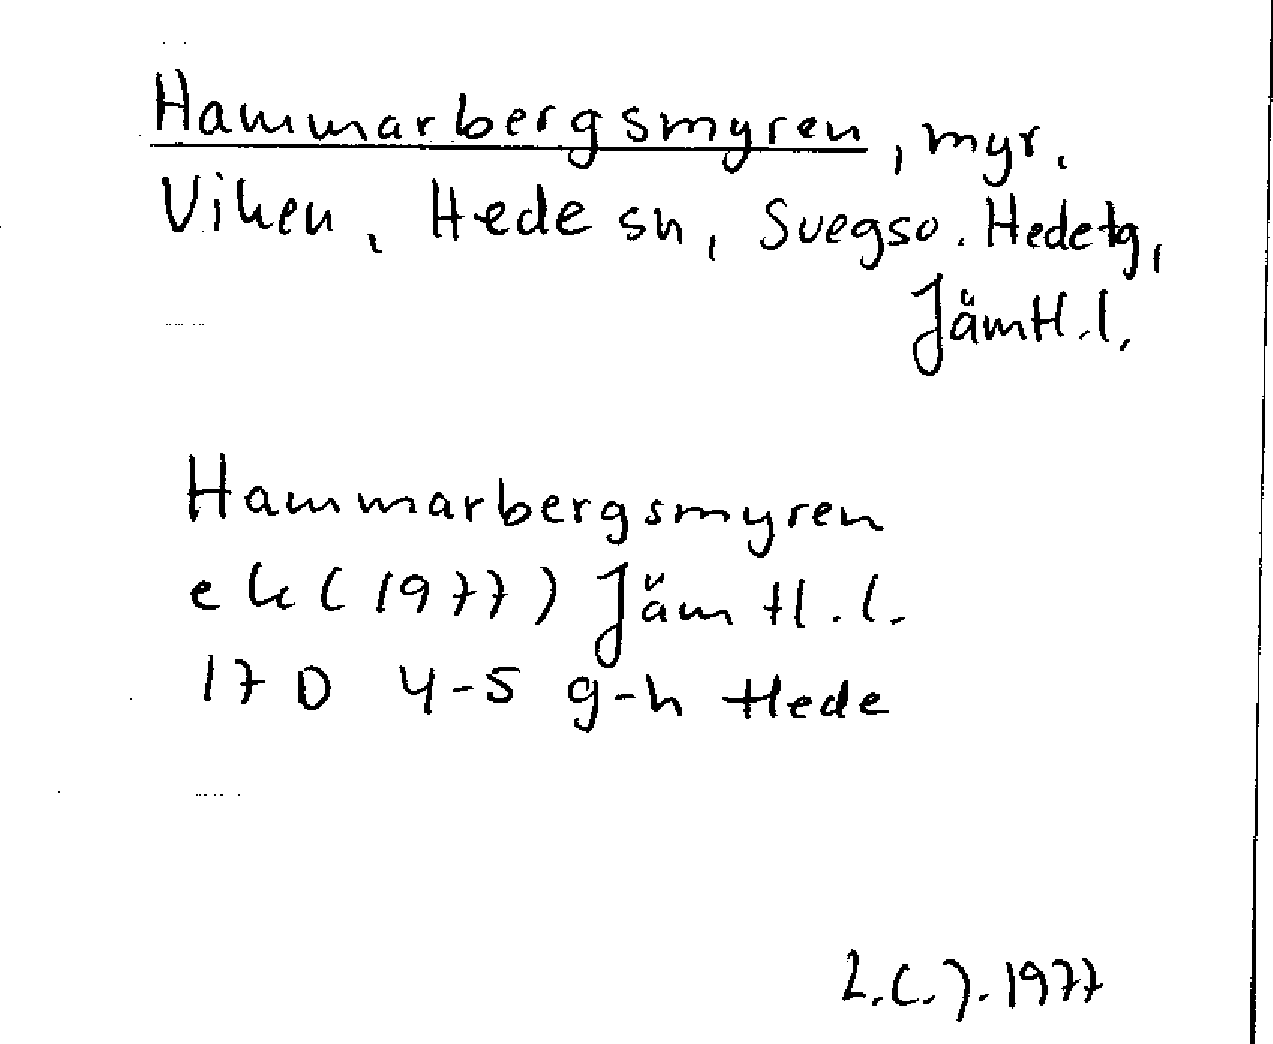 Hammarbergsmyren, myr.
Viken, Hede sn, Svegs so. Hede tg,
Jämtl.l.
Hammarbergsmyren
ek (1977) Jämtl.l.
17 D 4-5 g-h Hede
L.C.J. 1977